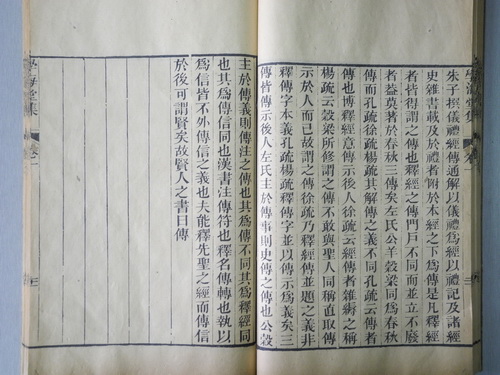 學海堂集
朱子撰儀禮經傳通解以儀禮爲經以禮記及諸經
史雜書載及於禮者附於本經之下爲傳是凡釋經
者皆得謂之傳也釋經之傳門戶不同而並立不廢
者益莫著於春秋三傳矣左氏公羊穀梁同爲春秋
傳而孔疏徐疏楊疏其解傳之義不同孔疏云傳者
傳也博釋經意傳示後人徐疏云經傳者雜縟之稱
楊疏云穀梁所修謂之傳不敢與聖人同稱直取傳
示於人而已故謂之傳徐疏乃釋經傳並題之義非
釋傳字本義孔疏楊疏釋傳字並以傳示爲義矣三
傳皆傳示後人左氏主於傳事則史傳之傳也公穀
主於傳義則傳注之傳也其爲傳不同其爲釋經同
也其爲傳信同也漢書注傳符也釋名傳轉也執以
爲信皆不外傳信之義也夫能釋先聖之經而傳信
於後可謂賢矣故賢人之書曰傳
學海堂集